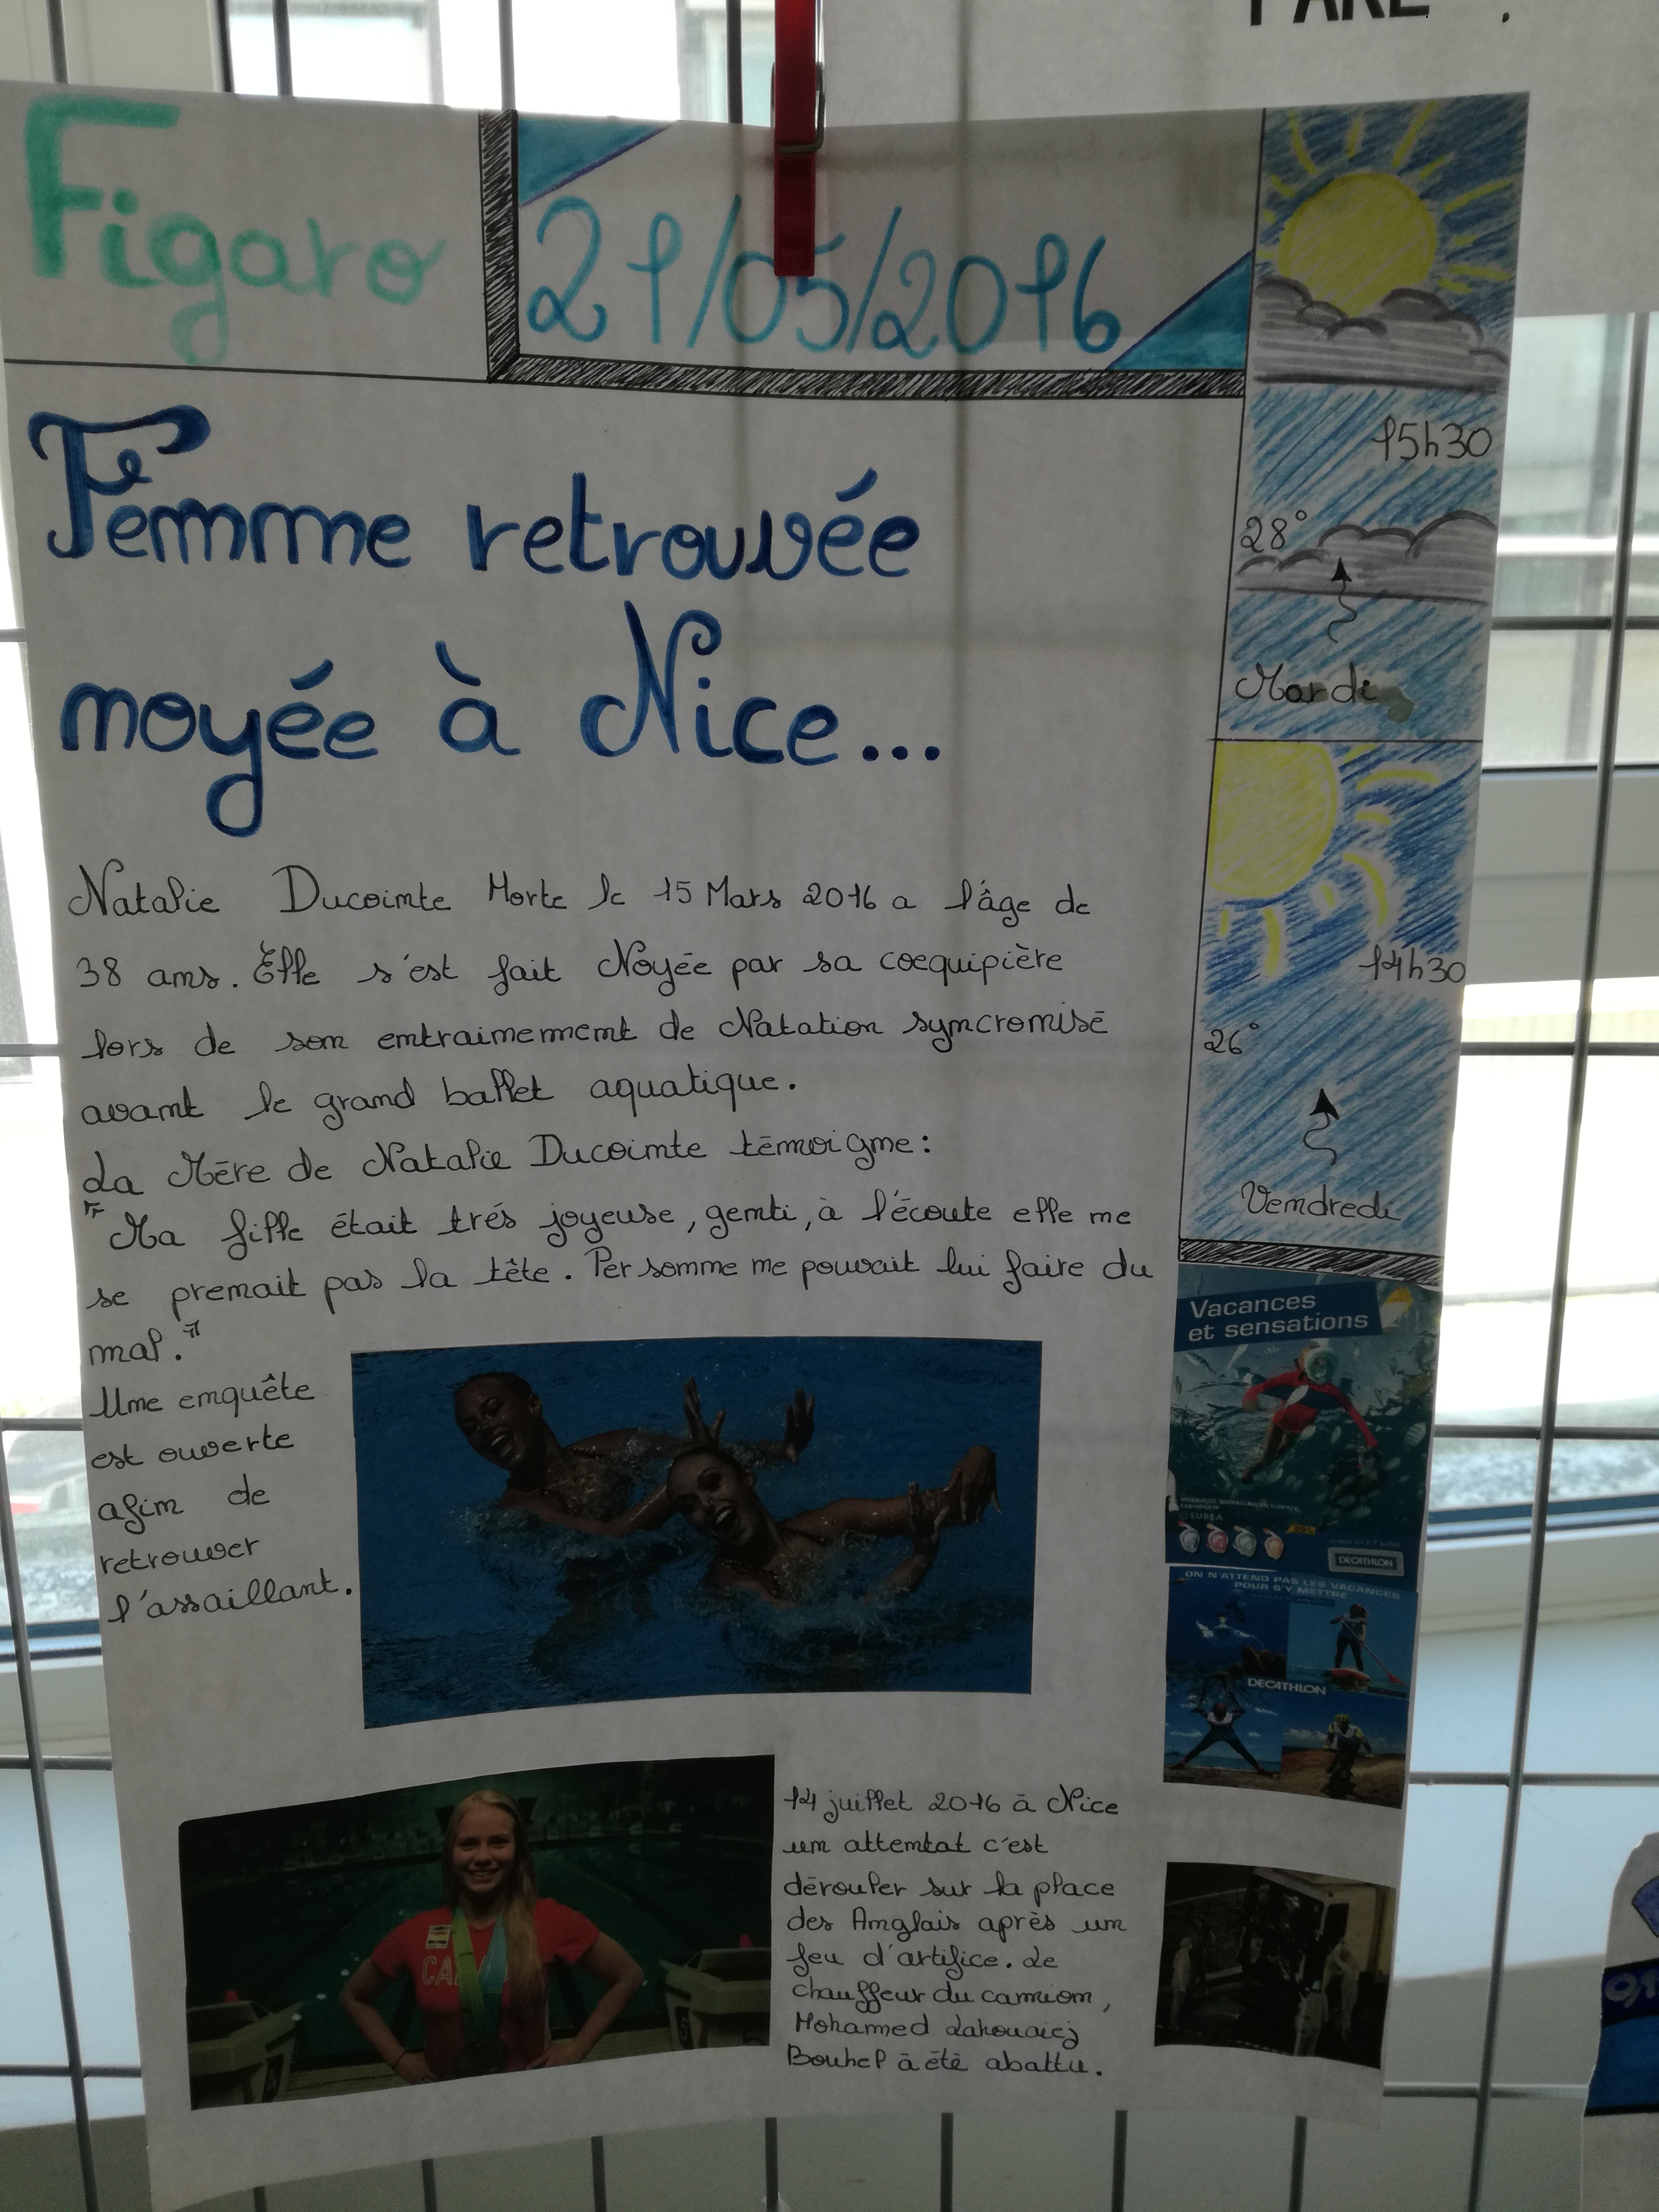 Figaro
21/05/2016
Femme retrouvée
noyée à Nice...
Natalie Ducointe Morte le 15 Mars 2016 a l'âge de
38 ans. Elle s'est fait Noyée par sa coequipière
lors de son entrainement de Natation syncronisé
avant le grand ballet aquatique.
La Mère de Natalie Ducointe témoigne:
"Ma fille était trés joyeuse, genti, à l'écoute elle ne
se prenait pas la tête. Personne ne pouvait lui faire du
mal."
Une enquête
est ouverte
afin de
retrouver
l'assaillant.
14 juillet 2016 à Nice
un attentat c'est
dérouler sur la place
des Anglais après un
feu d'artifice. Le
chauffeur du camion,
Mohamed Lahouaiej
Bouhel à été abattu.
15h30
28°
Mardi
14h30
26°
Vendredi
Vacances
et sensations
SUBEA
20%
DECATHLON
ON N'ATTEND PAS LES VACANCES
POUR S'Y METTRE
DECATHLON
CA
4
5